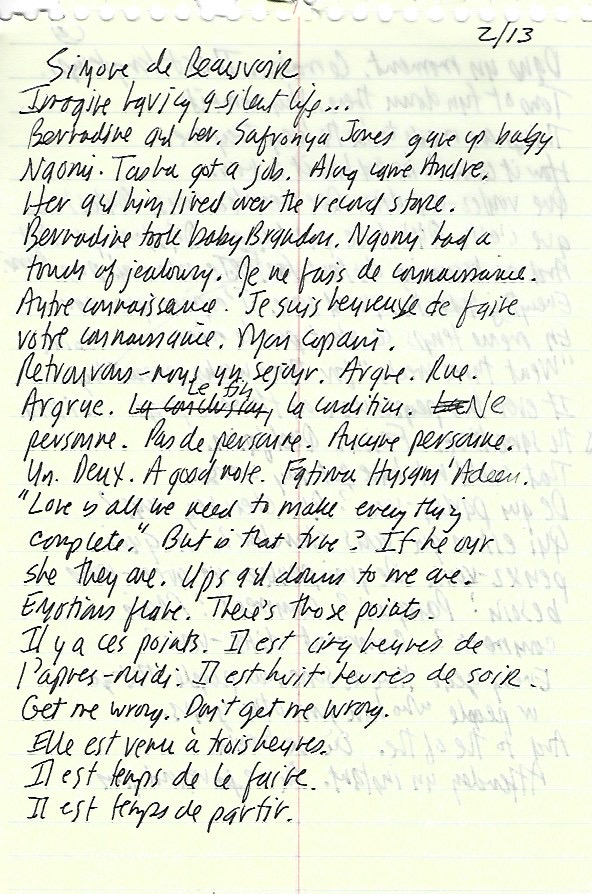 2/13
Simone de Beauvoir
Imagine having a silent life...
Bernadine and her. Safronya Jones gave up baby
Naomi. Tasha got a job. Along came Andre.
Her and him lived over the record store.
Bernadine took baby Brandon. Naomi had a
touch of jealousy. Je ne fais de connaissance.
Autre connaissance. Je suis heureuse de faire
votre connaissance. Mon copain.
Retrouvons-nous un sejour. Argue. Rue.
Le fin
Argrue. La conclusion, la condition. La Ne
personne. Pas de personne. Aucune personne.
Un. Deux. A good note. Fatima Hysam 'Adeen.
"Love is all we need to make everything
complete." But is that true? If he our
she they are. Ups and downs to me are.
Emotions flare. There's those points.
Il y a ces points. Il est cinq heures de
l'apres-midi. Il est huit heures de soir.
Get me wrong. Don't get me wrong.
Elle est venu à trois heures.
Il est temps de le faire.
Il est temps de partir.